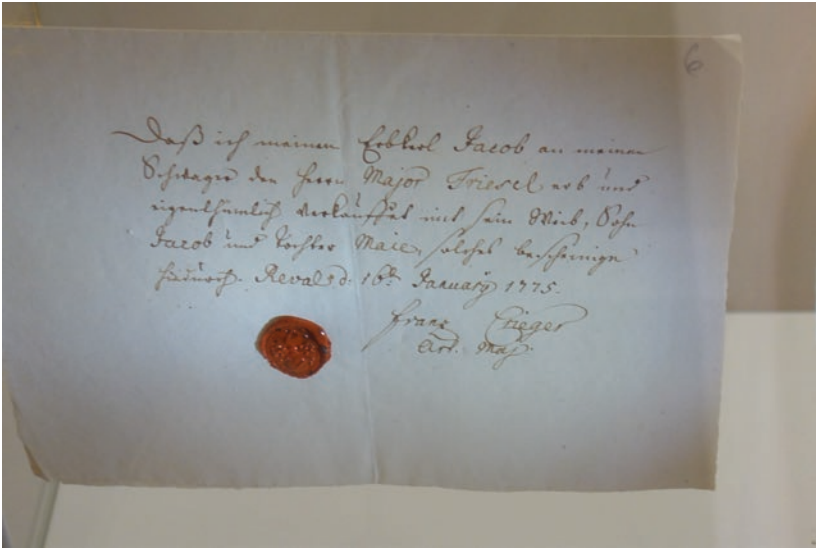 6
Daß ich meinen Erbkerl Jacob an meinen
Schwager den Herrn Major Friesel erb und
eigenthümlich verkauffet mit sein Weib, Sohn
Jacob und Tochter Maie, solches bescheinige
hiedurch. Reval d. 16t January 1775.
Franz
Maj.